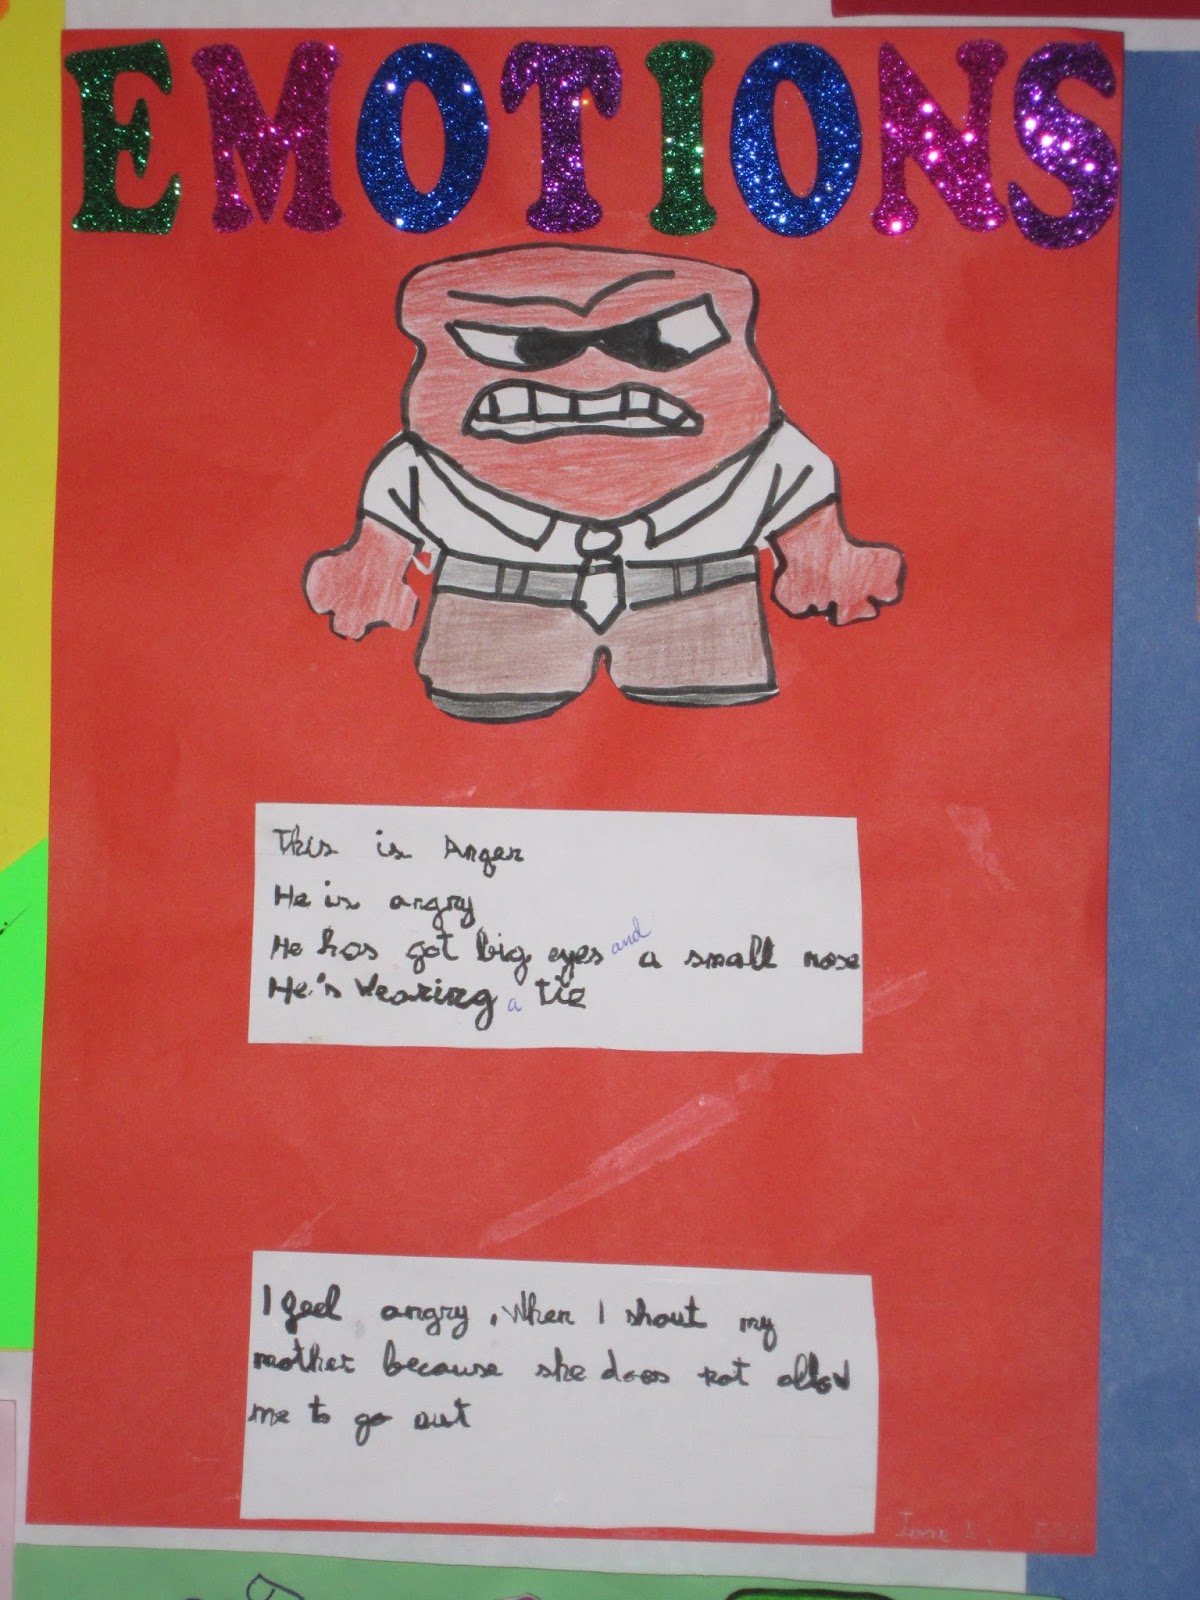 EMOTIONS
This is Anger
He is angry
He has got big eyes and a small nose
He's Wearing a tie
I feel angry, When I shout my
mother because she does not allow
me to go out